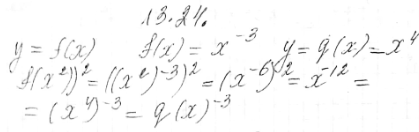 13.24.
y = f(x) f(x) = x⁻³ y = q(x) = x⁴
f(x²))² = ((x²)⁻³)² = (x⁻⁶)² = x⁻¹² =
= (x⁴)⁻³ = q(x)⁻³